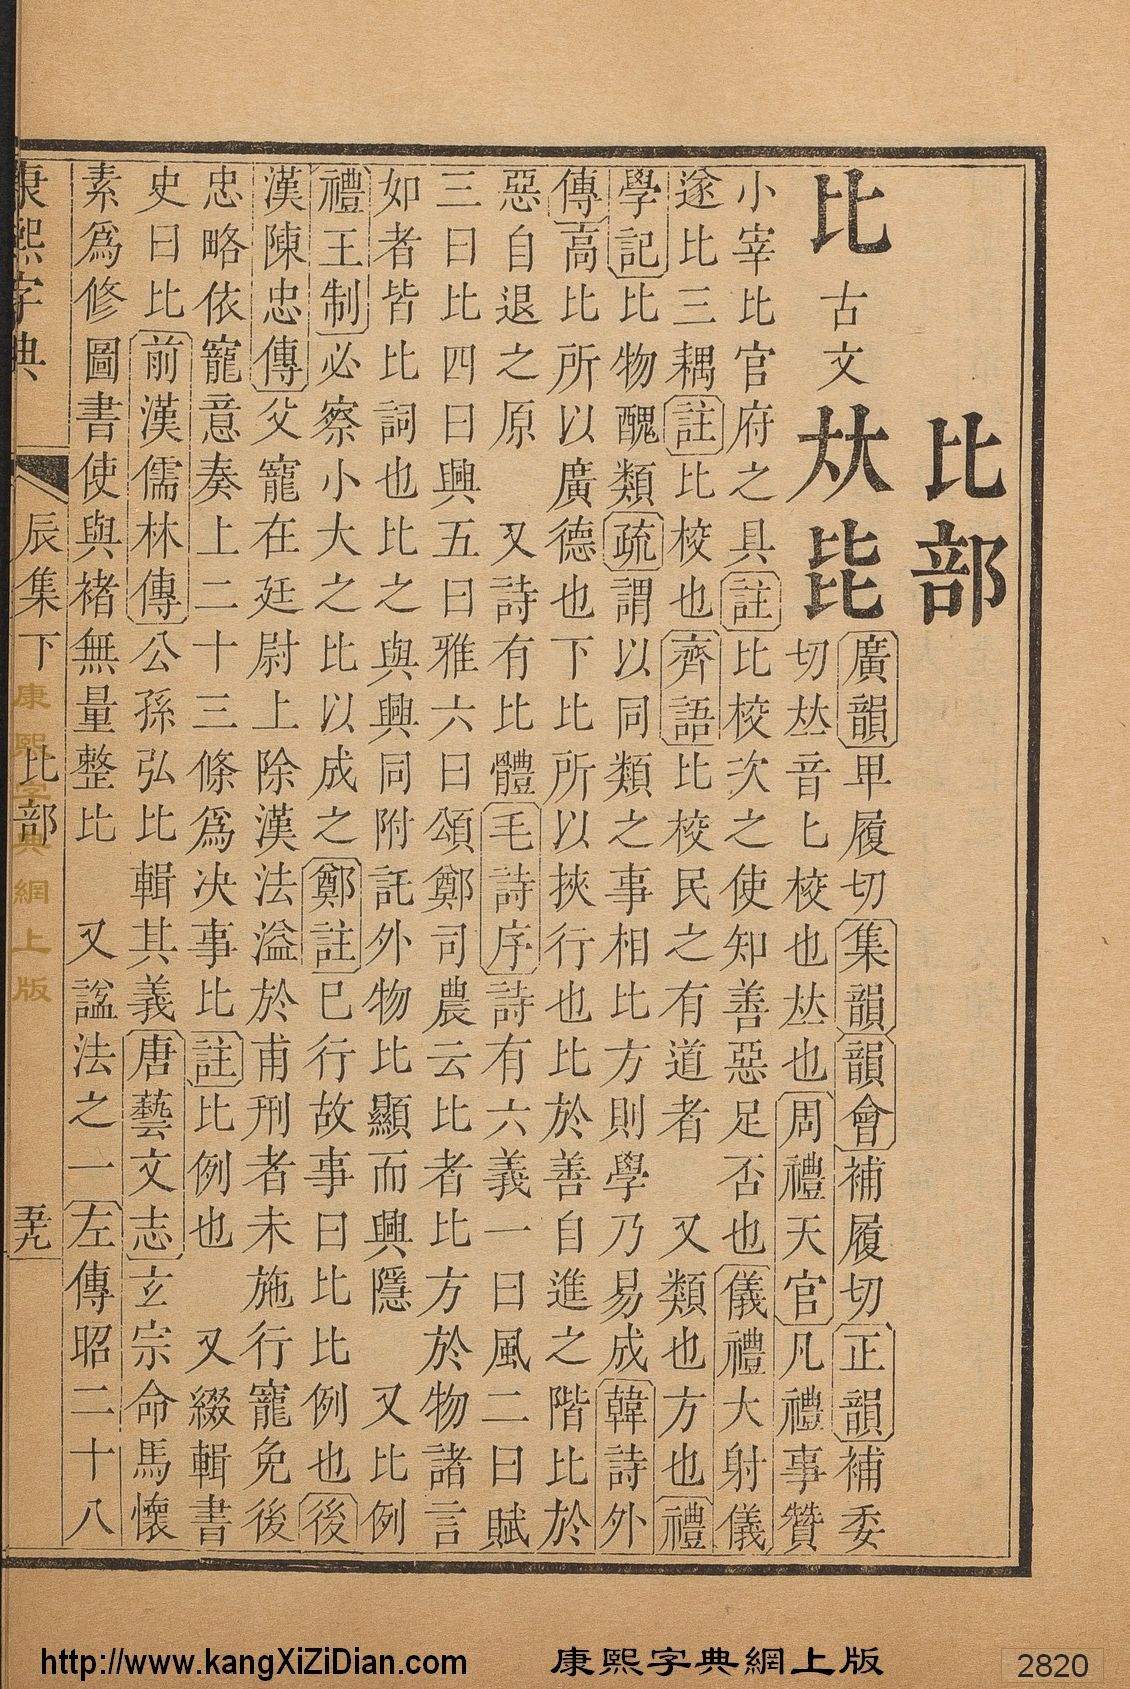 比部
比 古文 夶 𣬅
廣韻𤰞履切集韻韻會補履切正韻補委
切𠀤音匕校也𠀤也周禮天官凡禮事贊
小宰比官府之具註比校次之使知善惡足否也儀禮大射儀
遂比三耦註比校也齊語比校民之有道者 又類也方也禮
學記比物醜類疏謂以同類之事相比方則學乃易成韓詩外
傳高比所以廣德也下比所以挾行也比於善自進之階比於
惡自退之原 又詩有比體毛詩序詩有六義一曰風二曰賦
三曰比四曰興五曰雅六曰頌鄭司農云比者比方於物諸言
如者皆比詞也比之與興同附託外物比顯而興隱 又比例
禮王制必察小大之比以成之鄭註已行故事曰比比例也後
漢陳忠傳父寵在廷尉上除漢法溢於甫刑者未施行寵免後
忠略依寵意奏上二十三條爲决事比註比例也 又綴輯書
史曰比前漢儒林傳公孫弘比輯其義唐藝文志玄宗命馬懷
素爲修圖書使與褚無量整比 又諡法之一左傳昭二十八
康熙字典 辰集下 比部 五九
康熙字典網上版
http://www.kangXiZiDian.com 康熙字典網上版 2820